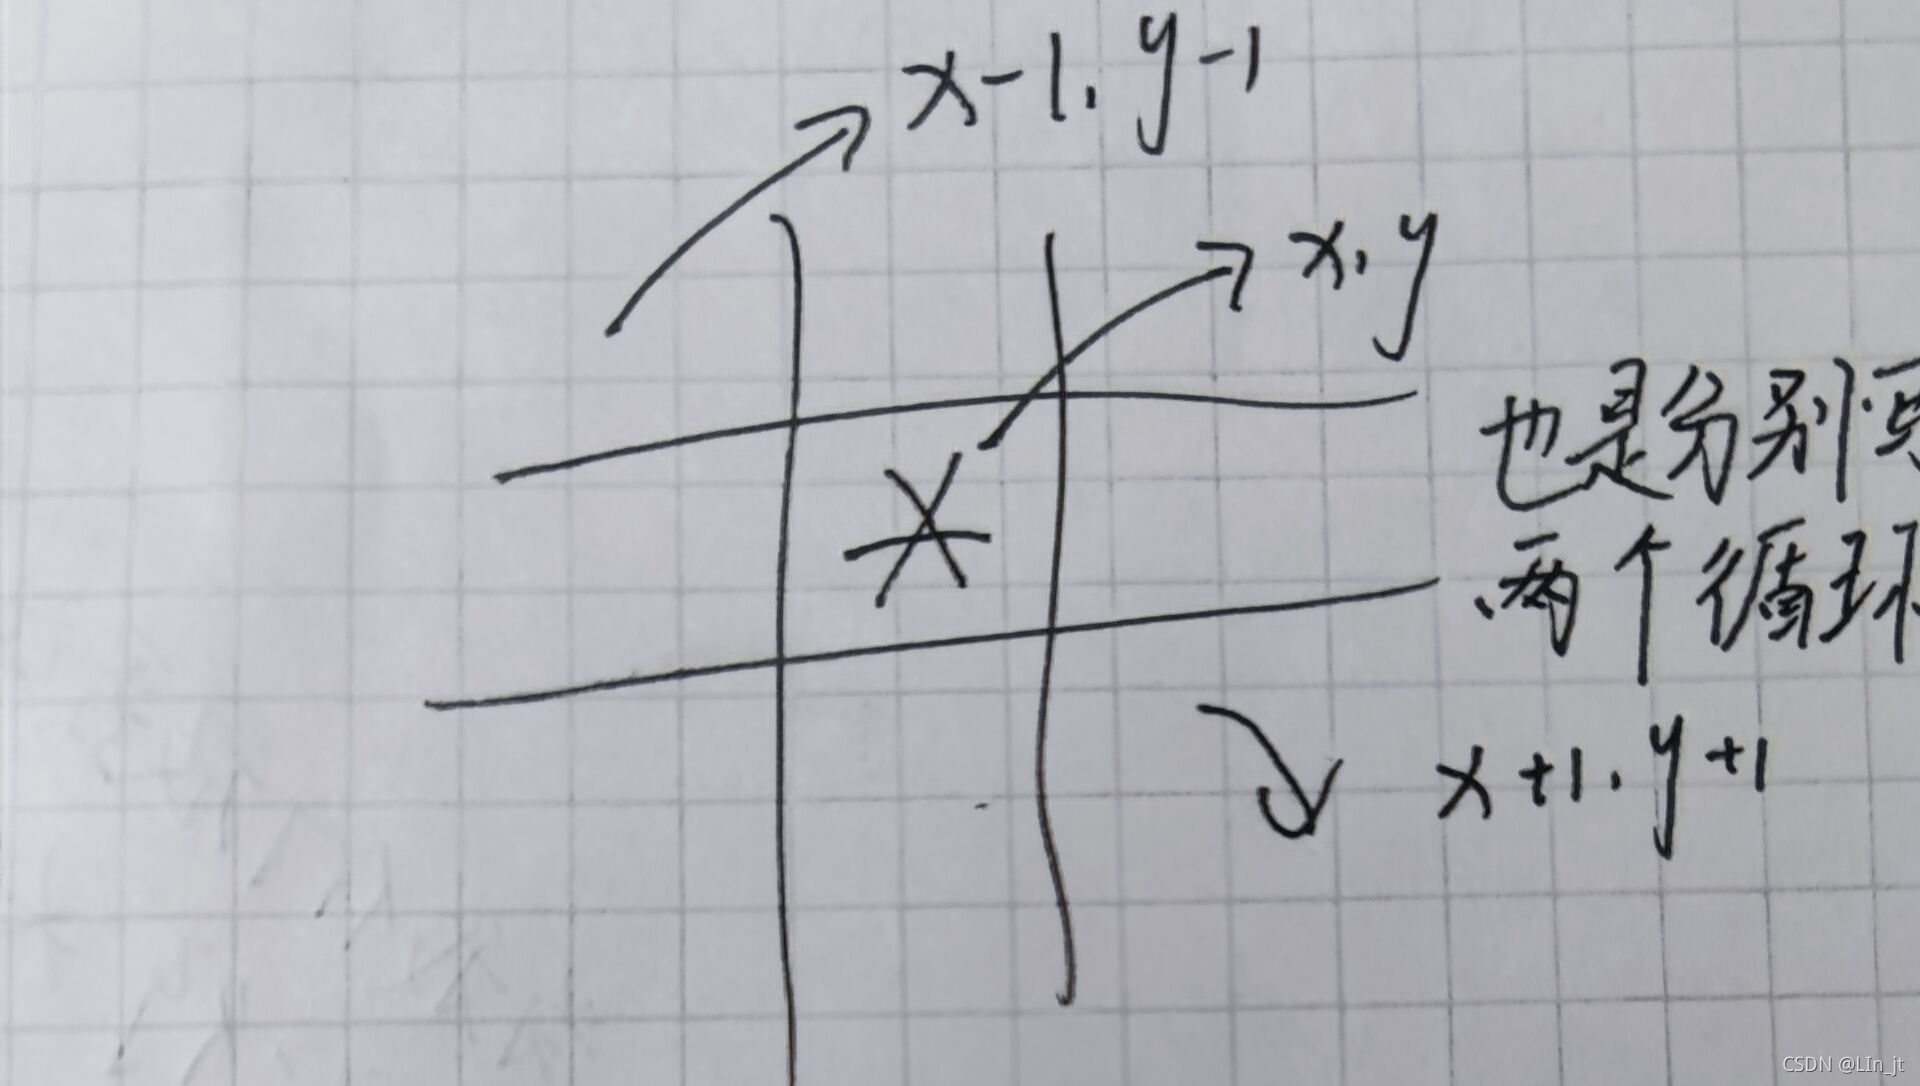 x-1, y-1
x, y
*
也是分别
两个循环
x+1, y+1
CSDN @LIn_jt